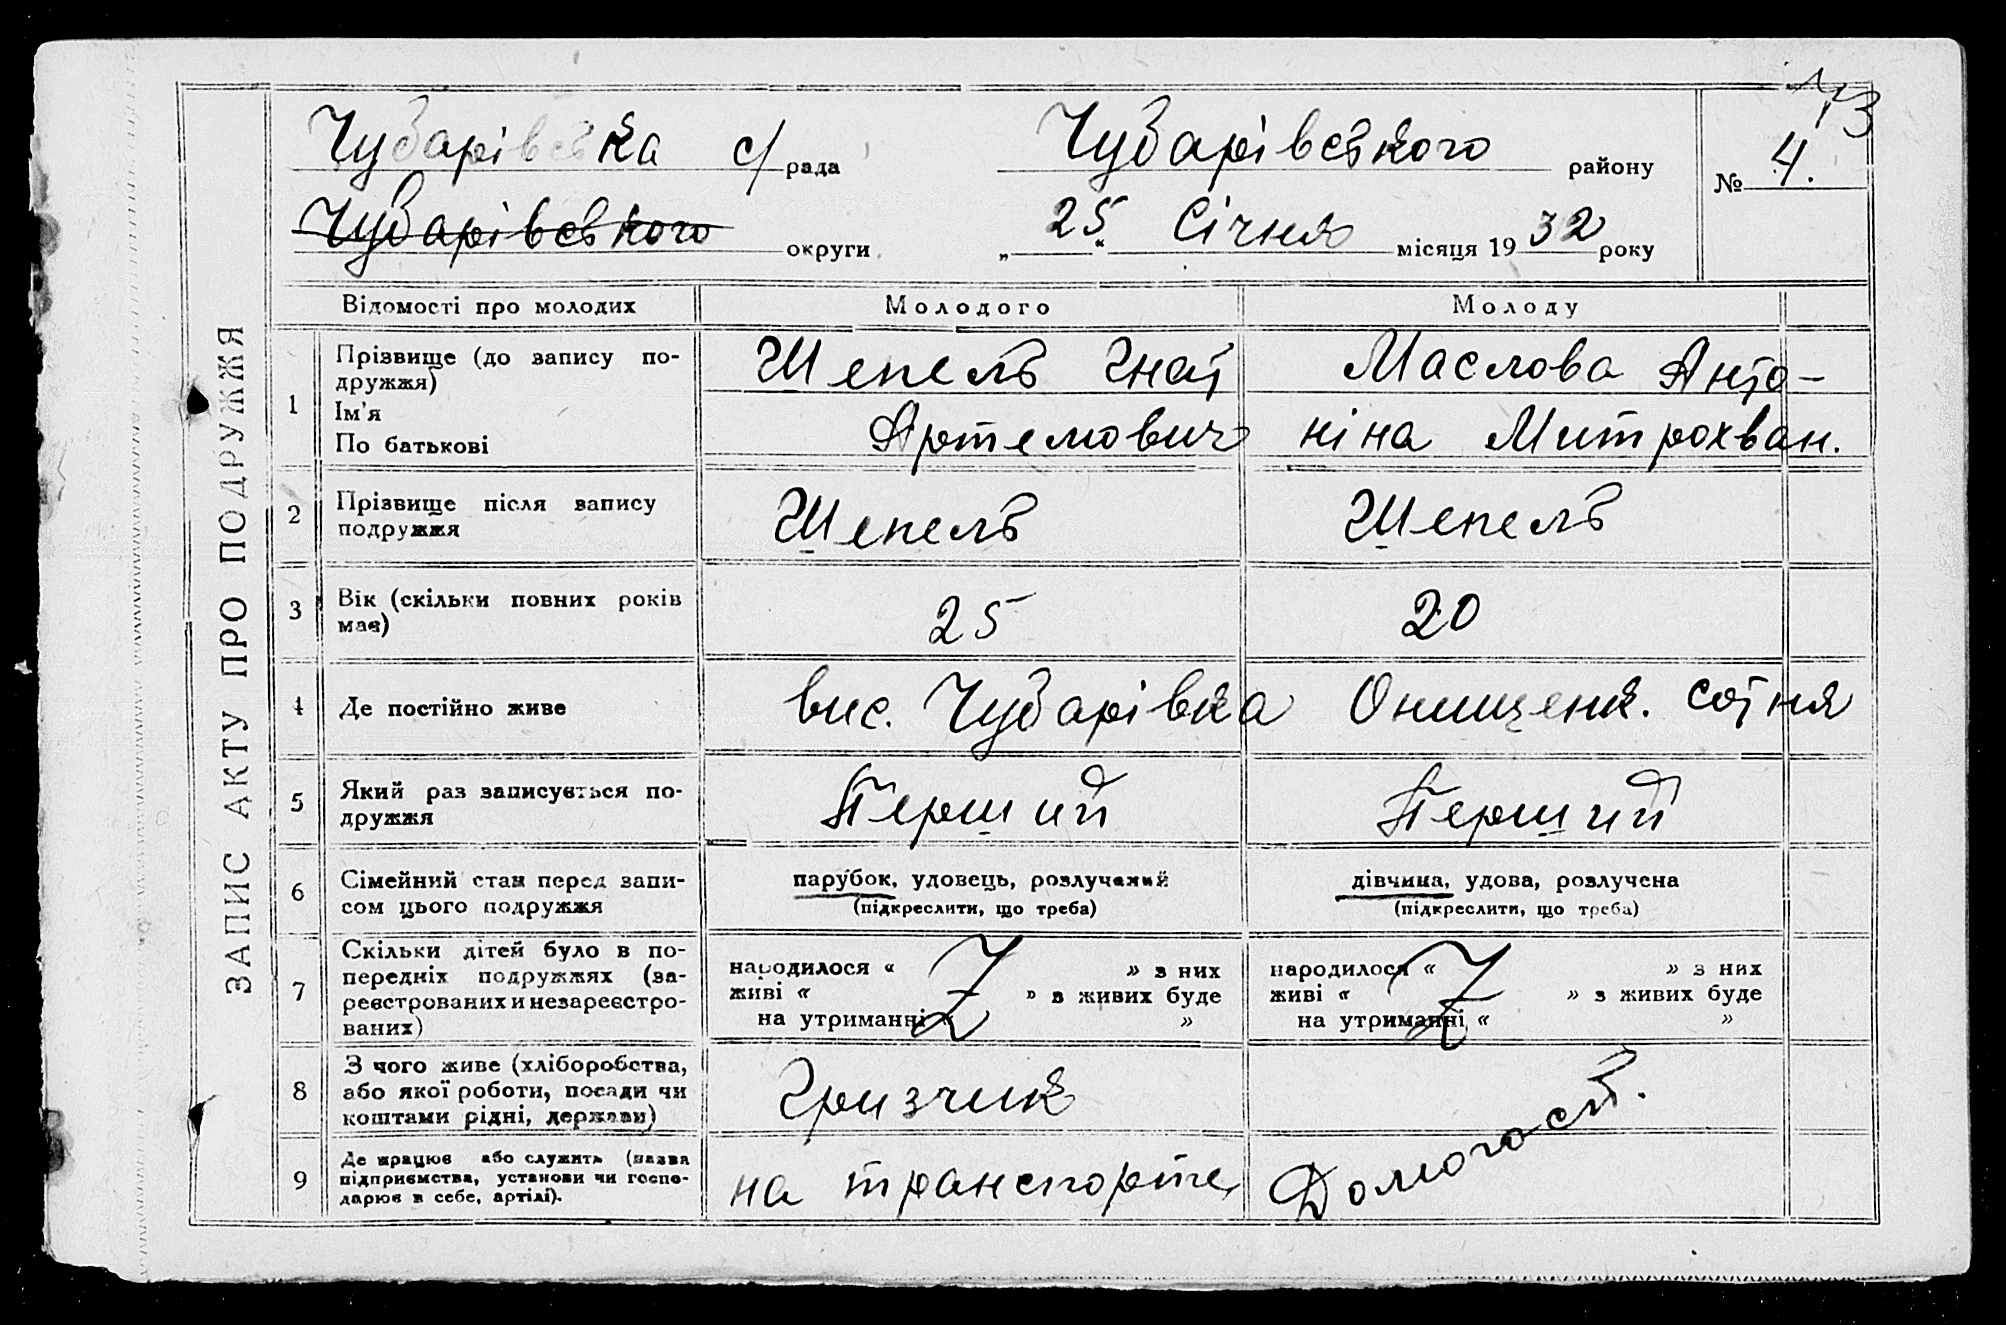 ЗАПИС АКТУ ПРО ПОДРУЖЖЯ
Чубарівська с/рада Чубарівського району № 4.
Чубарівського округи „25“ Січня місяця 1932 року
Відомості про молодих Молодого Молоду
1 Прізвище (до запису по-
дружжя)
Ім'я
По батькові
Шепель Гнат
Артемович
Маслова Анто-
ніна Митрохван.
2 Прізвище після запису
подружжя
Шепель Шепель
3 Вік (скільки повних років
має)
25 20
4 Де постійно живе вис. Чубарівка Онищенк. сотня
5 Який раз записується по-
дружжя
Перший Перший
6 Сімейний стан перед запи-
сом цього подружжя
парубок, удовець, розлучений
(підкреслити, що треба)
дівчина, удова, розлучена
(підкреслити, що треба)
7 Скільки дітей було в по-
передніх подружжях (за-
реєстрованих и незареєстро-
ваних)
народилося « » з них
живі « » з живих буде
на утриманні « »
народилося « » з них
живі « » з живих буде
на утриманні « »
8 З чого живе (хліборобства,
або якої роботи, посади чи
коштами рідні, держави)
Грузчик
9 Де працює або служить (назва
підприємства, установи чи госпо-
дарює в себе, артілі).
на транспорте
Домогосп.